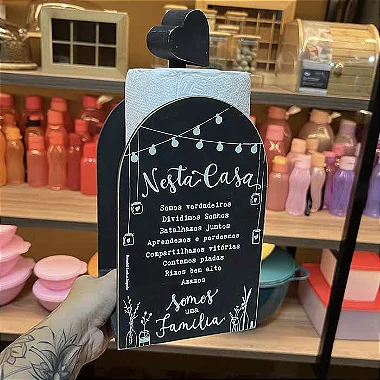 Nesta Casa
Somos verdadeiros
Dividimos Sonhos
Batalhamos juntos
Aprendemos e perdoamos
Compartilhamos vitórias
Contamos piadas
Rimos bem alto
Amamos
Somos
uma
Família